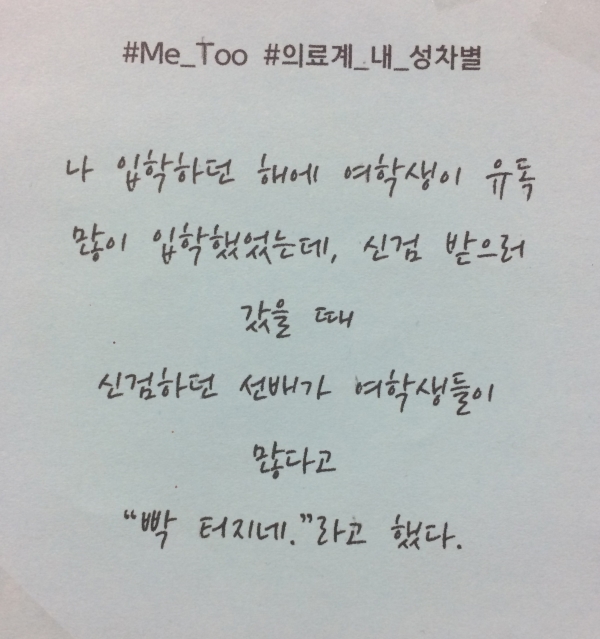 #Me_Too #의료계_내_성차별
나 입학하던 해에 여학생이 유독
많이 입학했었는데, 신검 받으러
갔을 때
신검하던 선배가 여학생들이
많다고
“빡 터지네.”라고 했다.